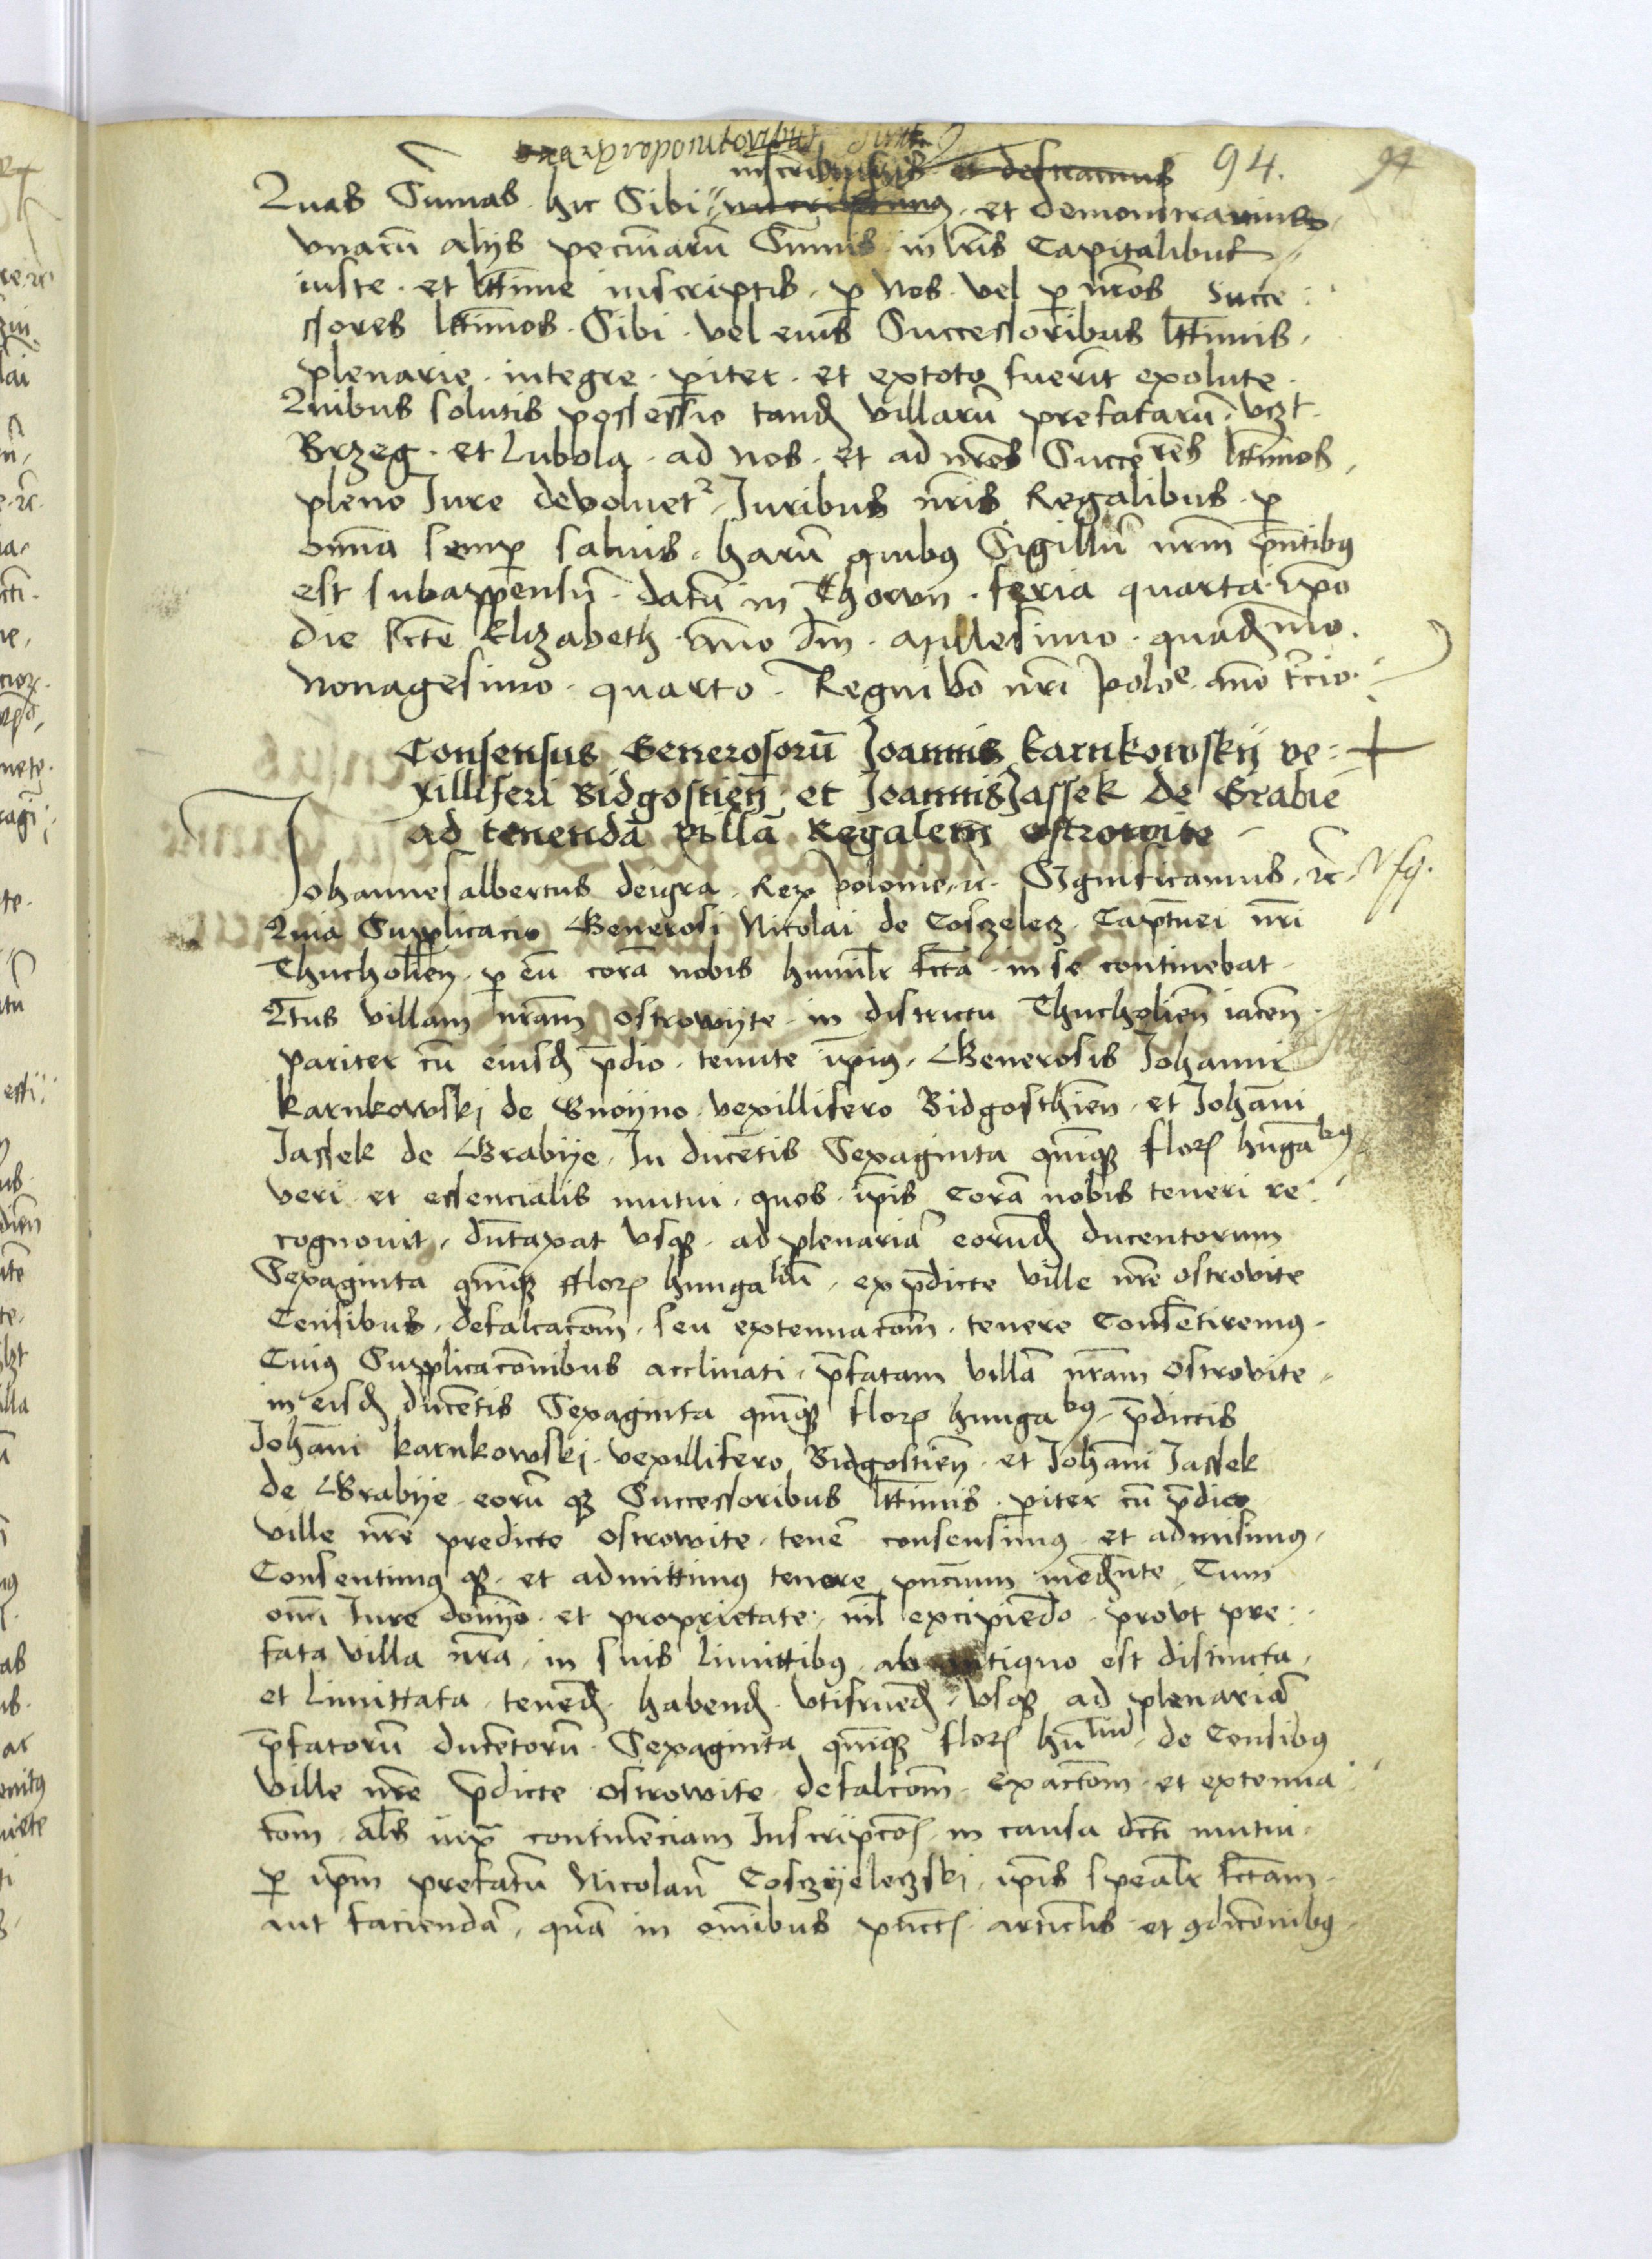 94. 94
inscribimus et destinamus
Quas Sumas hic Sibi inscribimus et demonstravimus
vnacu alijs pecuiaru Sumis in lris Capitalibus
iuste et lttime inscriptis p nos vel p nros Succe
ssores lttimos Sibi vel eius Successoribus lttimis
plenarie integre piter et extoto fuerit exolute
Quibus solutis possessio tand villaru prefataru vzt
Brzeg et Lubola ad nos et ad nros Succeres lttimos
pleno Jure devoluet Juribus nris Regalibus p
omia semp saluis haru quibus Sigillu nrm pntibus
est subappensu datu in Thorun feria quarta ipo
die scte Elizabeth Anno dm Millesimo quadmo
nonagesimo quarto Regni vo nri Poloe anno tcio
Consensus Generosoru Joannis karnkowskij ve
xilliferi Bidgostien et Joannis Jassek de Grabie
ad tenenda villa Regalem ostrowite
Johannes albertus deigra Rex polonie rc Significamus rc
Quia Supplicacio Generosi Nicolai de Coszelecz Captnei nri
Thucholien p eu cora nobis humilr fcta in se continebat
Qtus villam nram ostrowijte in districtu Thucholien iacen
pariter cu eiusd pdio tenute ipius Generosis Johanni
karnkowskj de Gnoijno vexillifero Bidgosthien et Johani
Jassek de Grabije In ducetis Sexaginta quiqz flor hungabus
veri et essencialis mutui quos ipis Cora nobis teneri re
cognouit duntaxat vsqz ad plenaria eorund ducentorum
Sexaginta quiqz fflor hungalium ex pdicte ville nre ostrovite
Censibus defalcacom seu extenuacom tenere Consetiremus
Cuius Supplicaconibus acclinati pfatam villa nram ostrovite
in eisd ducetis Sexaginta quiqz flor hungabus pdictis
Johani karnkowskj vexillifero Bidgostien et Johani Jassek
de Grabije eoru qz Successoribus lttimis piter cu pdio
ville nre predicte ostrowite tene consensimus et admisimus
Consentimus qz et admittimus tenore pncium mediante Cum
omi Jure domio et proprietate nil excipiedo provt pre
fata villa nra in suis limittibus ab antiquo est distincta
et limittata tened habend vtifrued vsqz ad plenaria
pfatoru ducetoru Sexaginta quiqz flor huliu de Censibus
ville nre pdicte ostrowite defalcom exactom et extenua
com als iuxta continenciam Inscripcos in causa dcti mutui
p ipm prefatu Nicolau Cosczijeleczskj ipis spealr fctam
aut facienda qua in omibus puctis articlis et gdiconibus